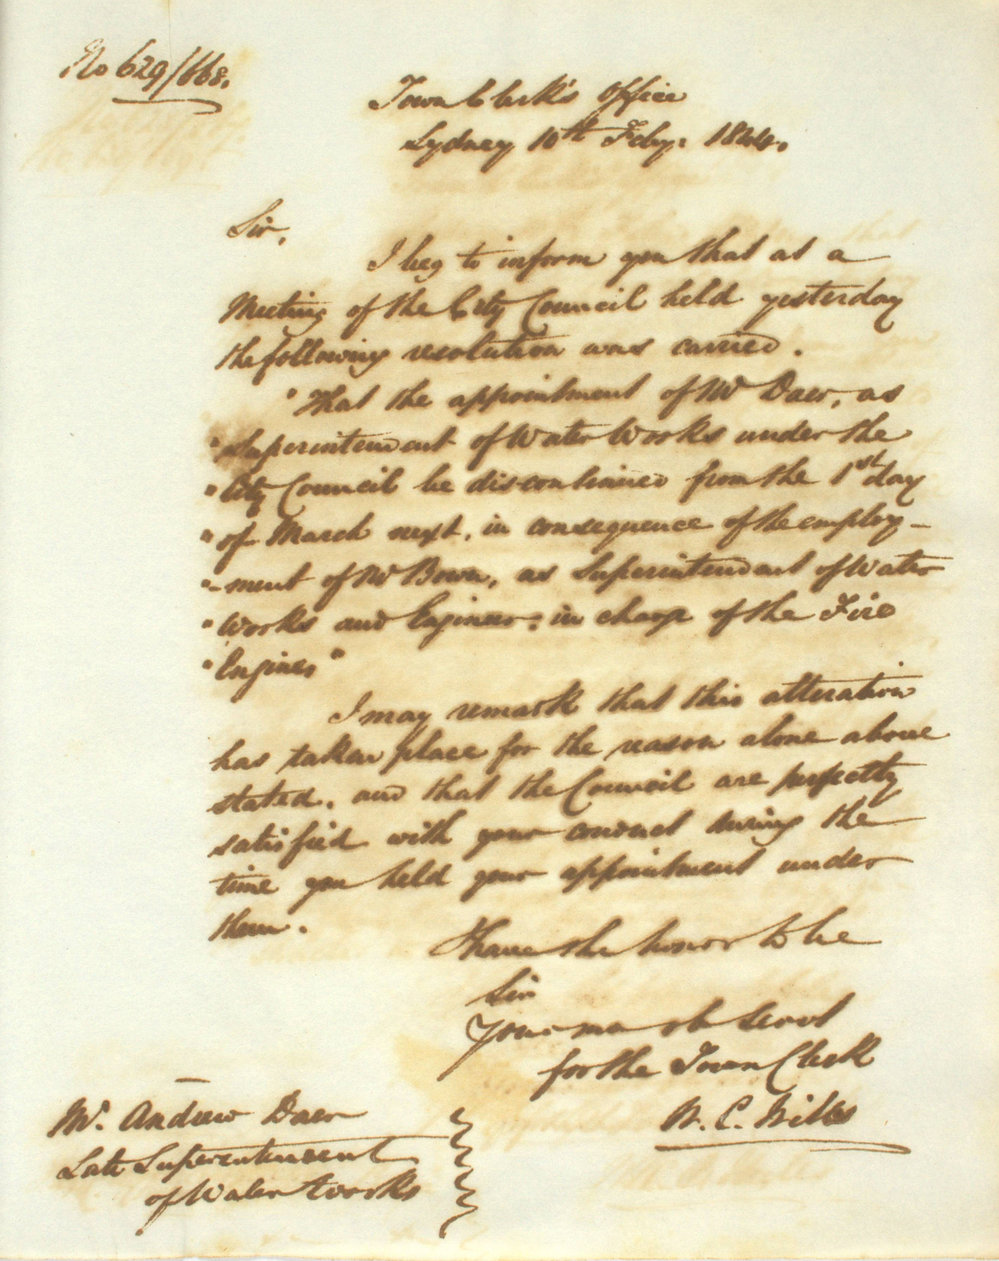 No 629/668.
Town Clerk's Office
Sydney 10th Feby: 1844.
Sir,
I beg to inform you that at a
Meeting of the City Council held yesterday
the following resolution was carried.
"That the appointment of Mr Daer, as
"Superintendent of Water Works under the
"City Council be discontinued from the 1st day
"of March next, in consequence of the employ-
"-ment of Mr Bown, as Superintendent of Water
"Works and Engineer, in charge of the Fire
"Engines"
I may remark that this alteration
has taken place for the reason alone above
stated, and that the Council are perfectly
satisfied with your conduct during the
time you held your appointment under
them.
I have the honor to be
Sir
Your mo ob Servt
for the Town Clerk
W. C.
Mr. Andrew Daer
Late Superintendent
of Water Works